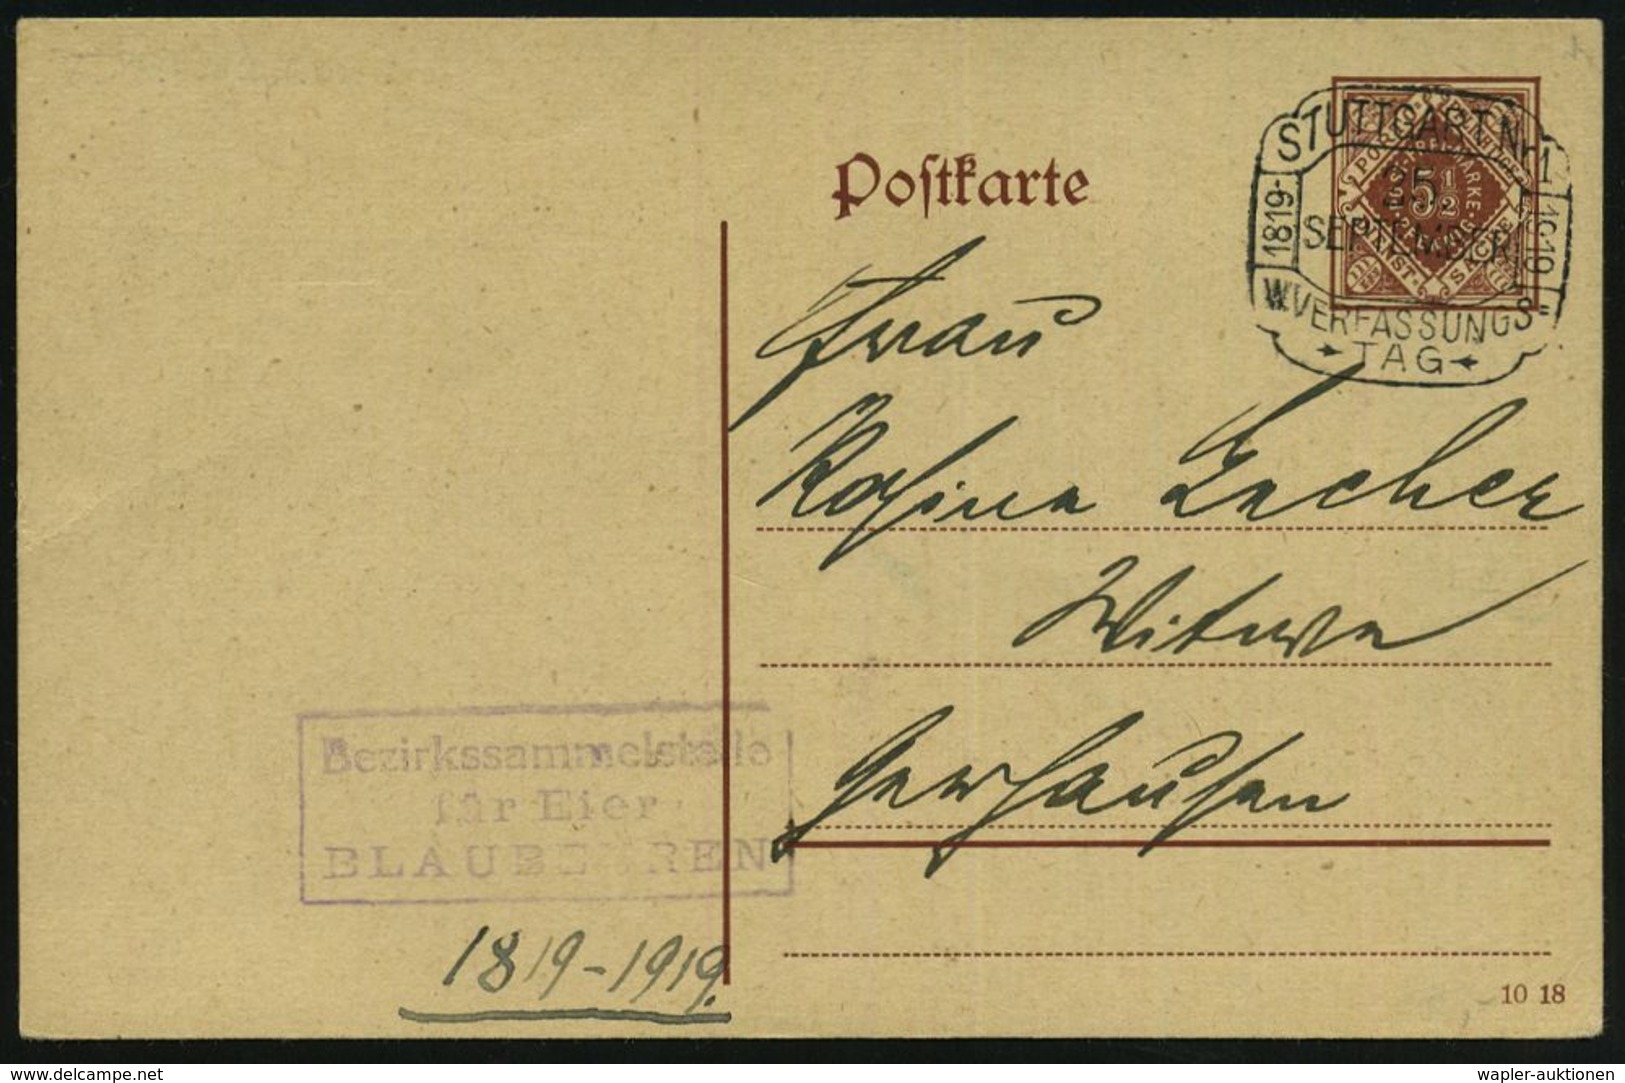 Postkarte
STUTTGART NR 1
25.
SEPTEMBER
1819-
1919
W. VERFASSUNGS
TAG
5 1/2
Frau
Rosina Lacher
Witwe
Gerhausen
Bezirkssammelstelle
für Eier
BLAUBEUREN
1819-1919.
10 18
www.delcampe.net
wapler-auktionen